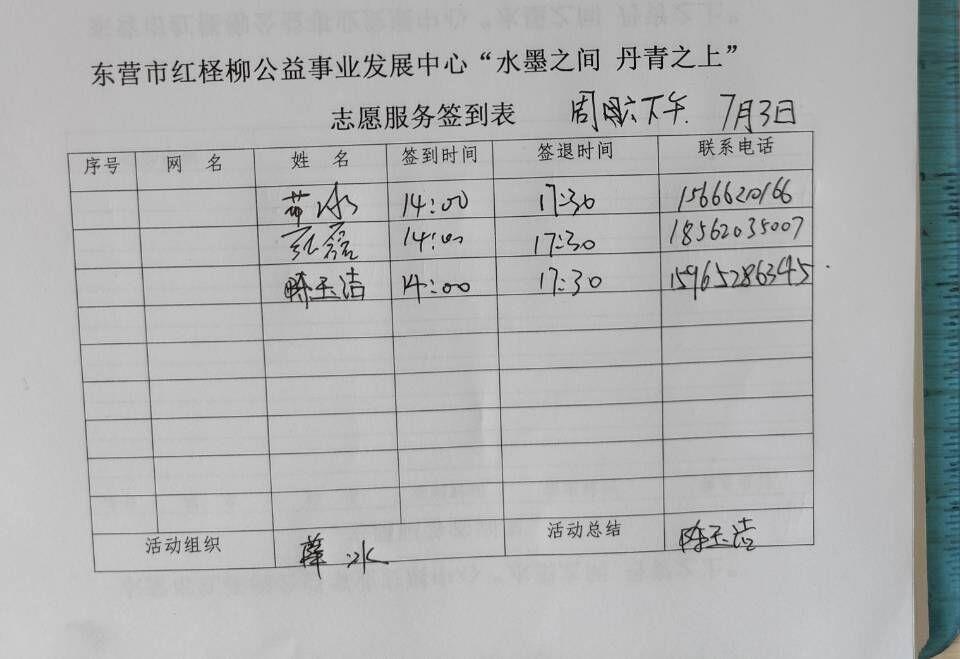 东营市红柽柳公益事业发展中心“水墨之间 丹青之上”
志愿服务签到表 周六下午 7月3日
序号 网 名 姓 名 签到时间 签退时间 联系电话
冰 14:00 17:30 1566620166
张磊 14:00 17:30 18562035007
陈玉洁 14:00 17:30 15965286345
活动组织 薛冰 活动总结 陈玉洁